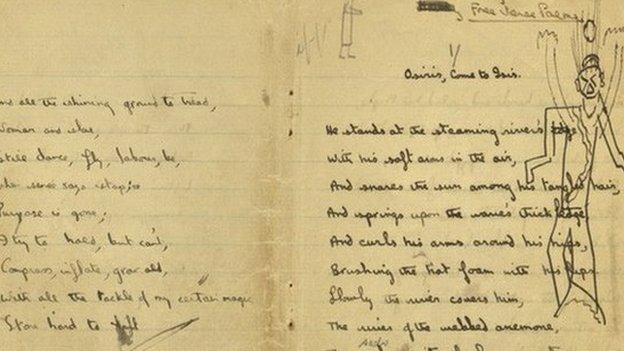 And all the shining ground to tread,
Woman and
Still dance, fly, labour, be,
sense says stop;
Purpose is gone;
I try to hold, but can't,
Compress, inflate, grow old,
With all the tackle of my certain magic
Stone hard to lift
Free Verse
Osiris, Come to Isis.
He stands at the steaming river's edge
With his soft arms in the air,
And snares the sun among his tangled hair,
And springs upon the wave's thick ledge
And curls his arms around his hips,
Brushing the hot foam with his lips.
Slowly the river covers him,
The river of the webbed anemone,